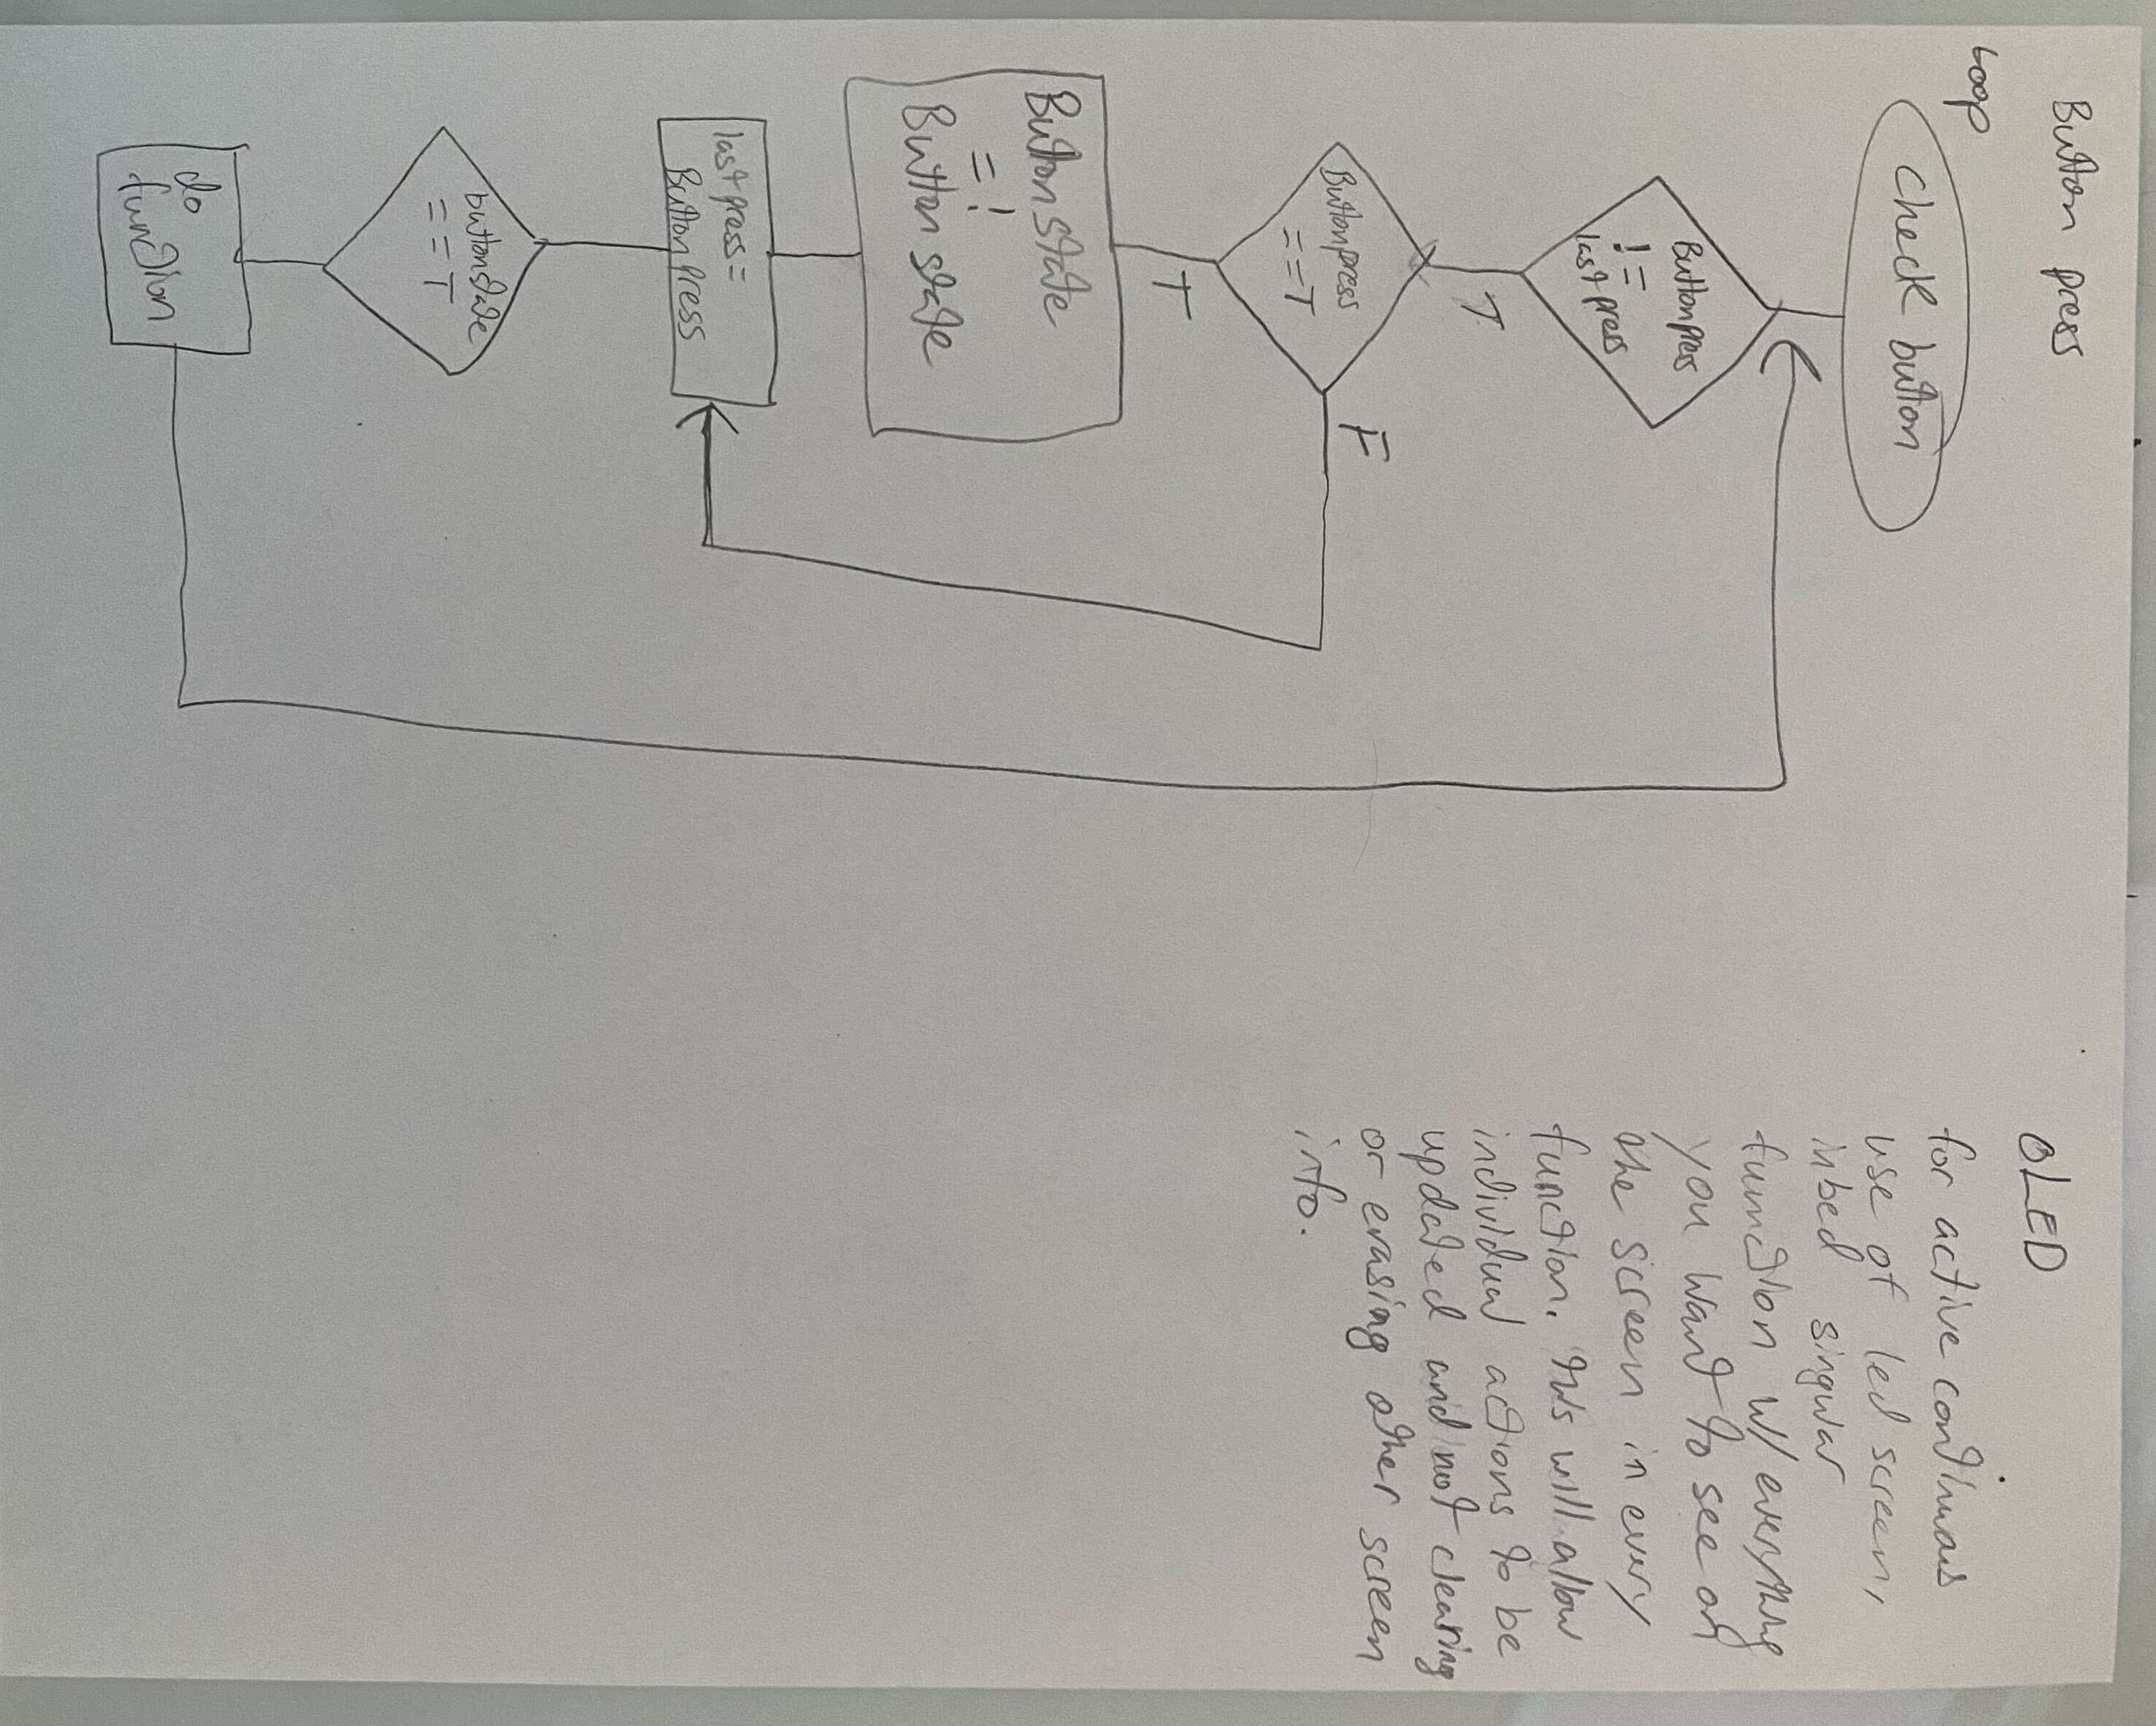 Button press
Loop
check button
Buttonpress
!=
lastpress
T
Buttonpress
==T
F
T
Button state
=!
Button state
lastpress=
Buttonpress
buttonstate
==T
do
function
OLED
for active continuous
use of led screen,
inbed singular
function w/ everything
you want to see on
the screen in every
function. this will allow
individual actions to be
updated and not clearing
or erasing other screen
info.